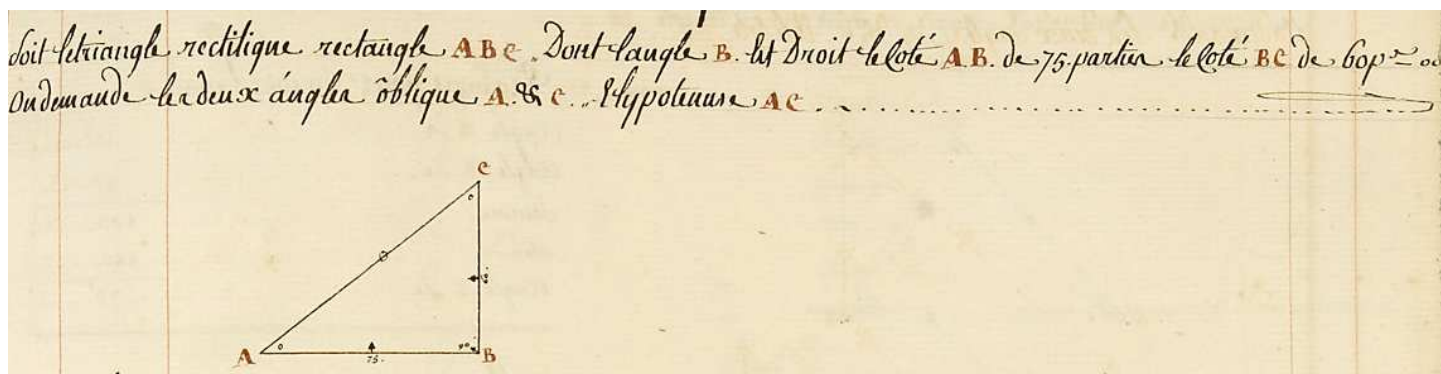 Soit le triangle rectilique rectangle ABC. Dont l'angle B. Est Droit le Coté AB. de 75. parties le Coté BC de 60 p.
On demande les deux ángles õblique A. & C. L'hypotenuse AC
C
60
A
75.
90
B